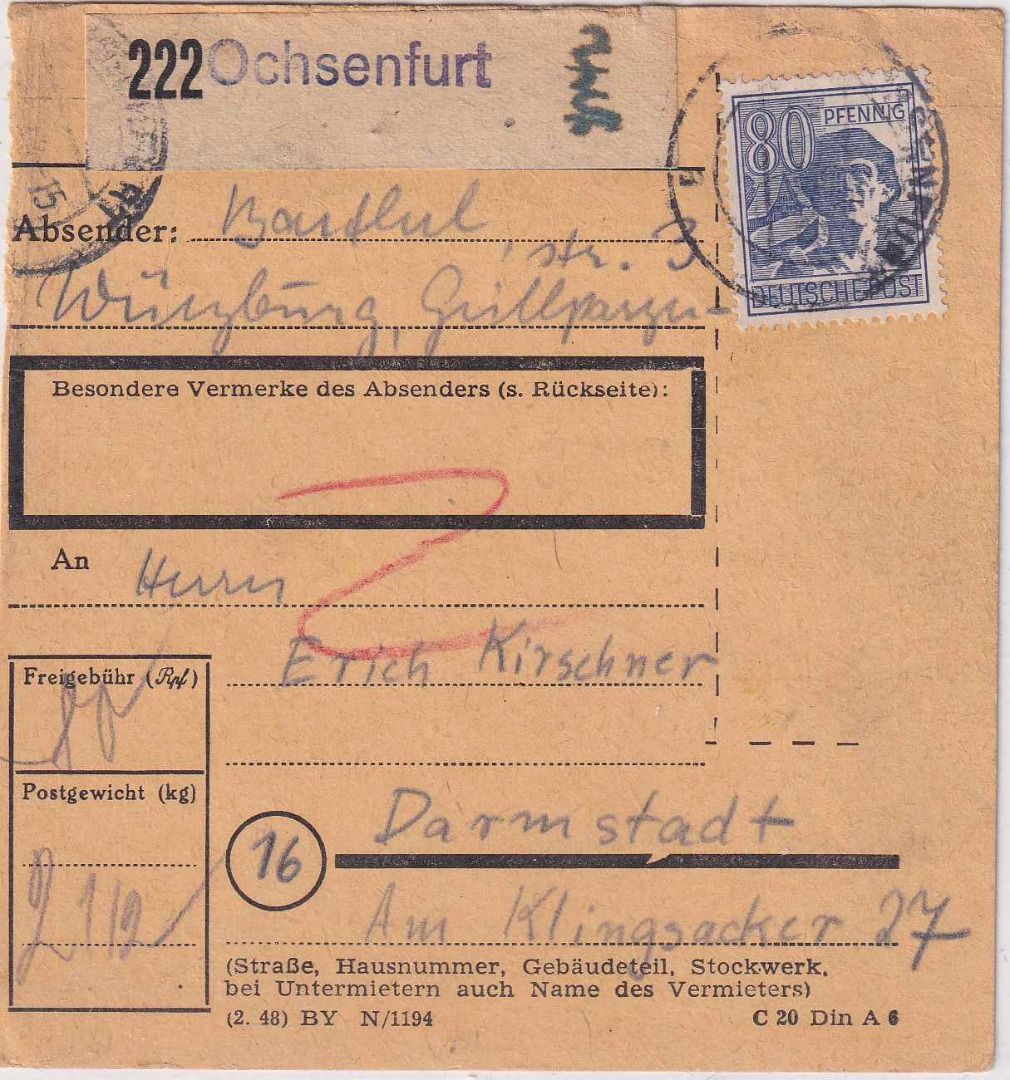 222 Ochsenfurt
80 PFENNIG
DEUTSCHE POST
15
Absender:
str. 3
Würzburg, Grillparzer-
Besondere Vermerke des Absenders (s. Rückseite):
An Herrn
Erich Kirschner
Freigebühr (Rpf)
80
Postgewicht (kg)
2 1/2
16
Darmstadt
Am Klingsacker 27
(Straße, Hausnummer, Gebäudeteil, Stockwerk,
bei Untermietern auch Name des Vermieters)
(2. 48) BY N/1194 C 20 Din A 6